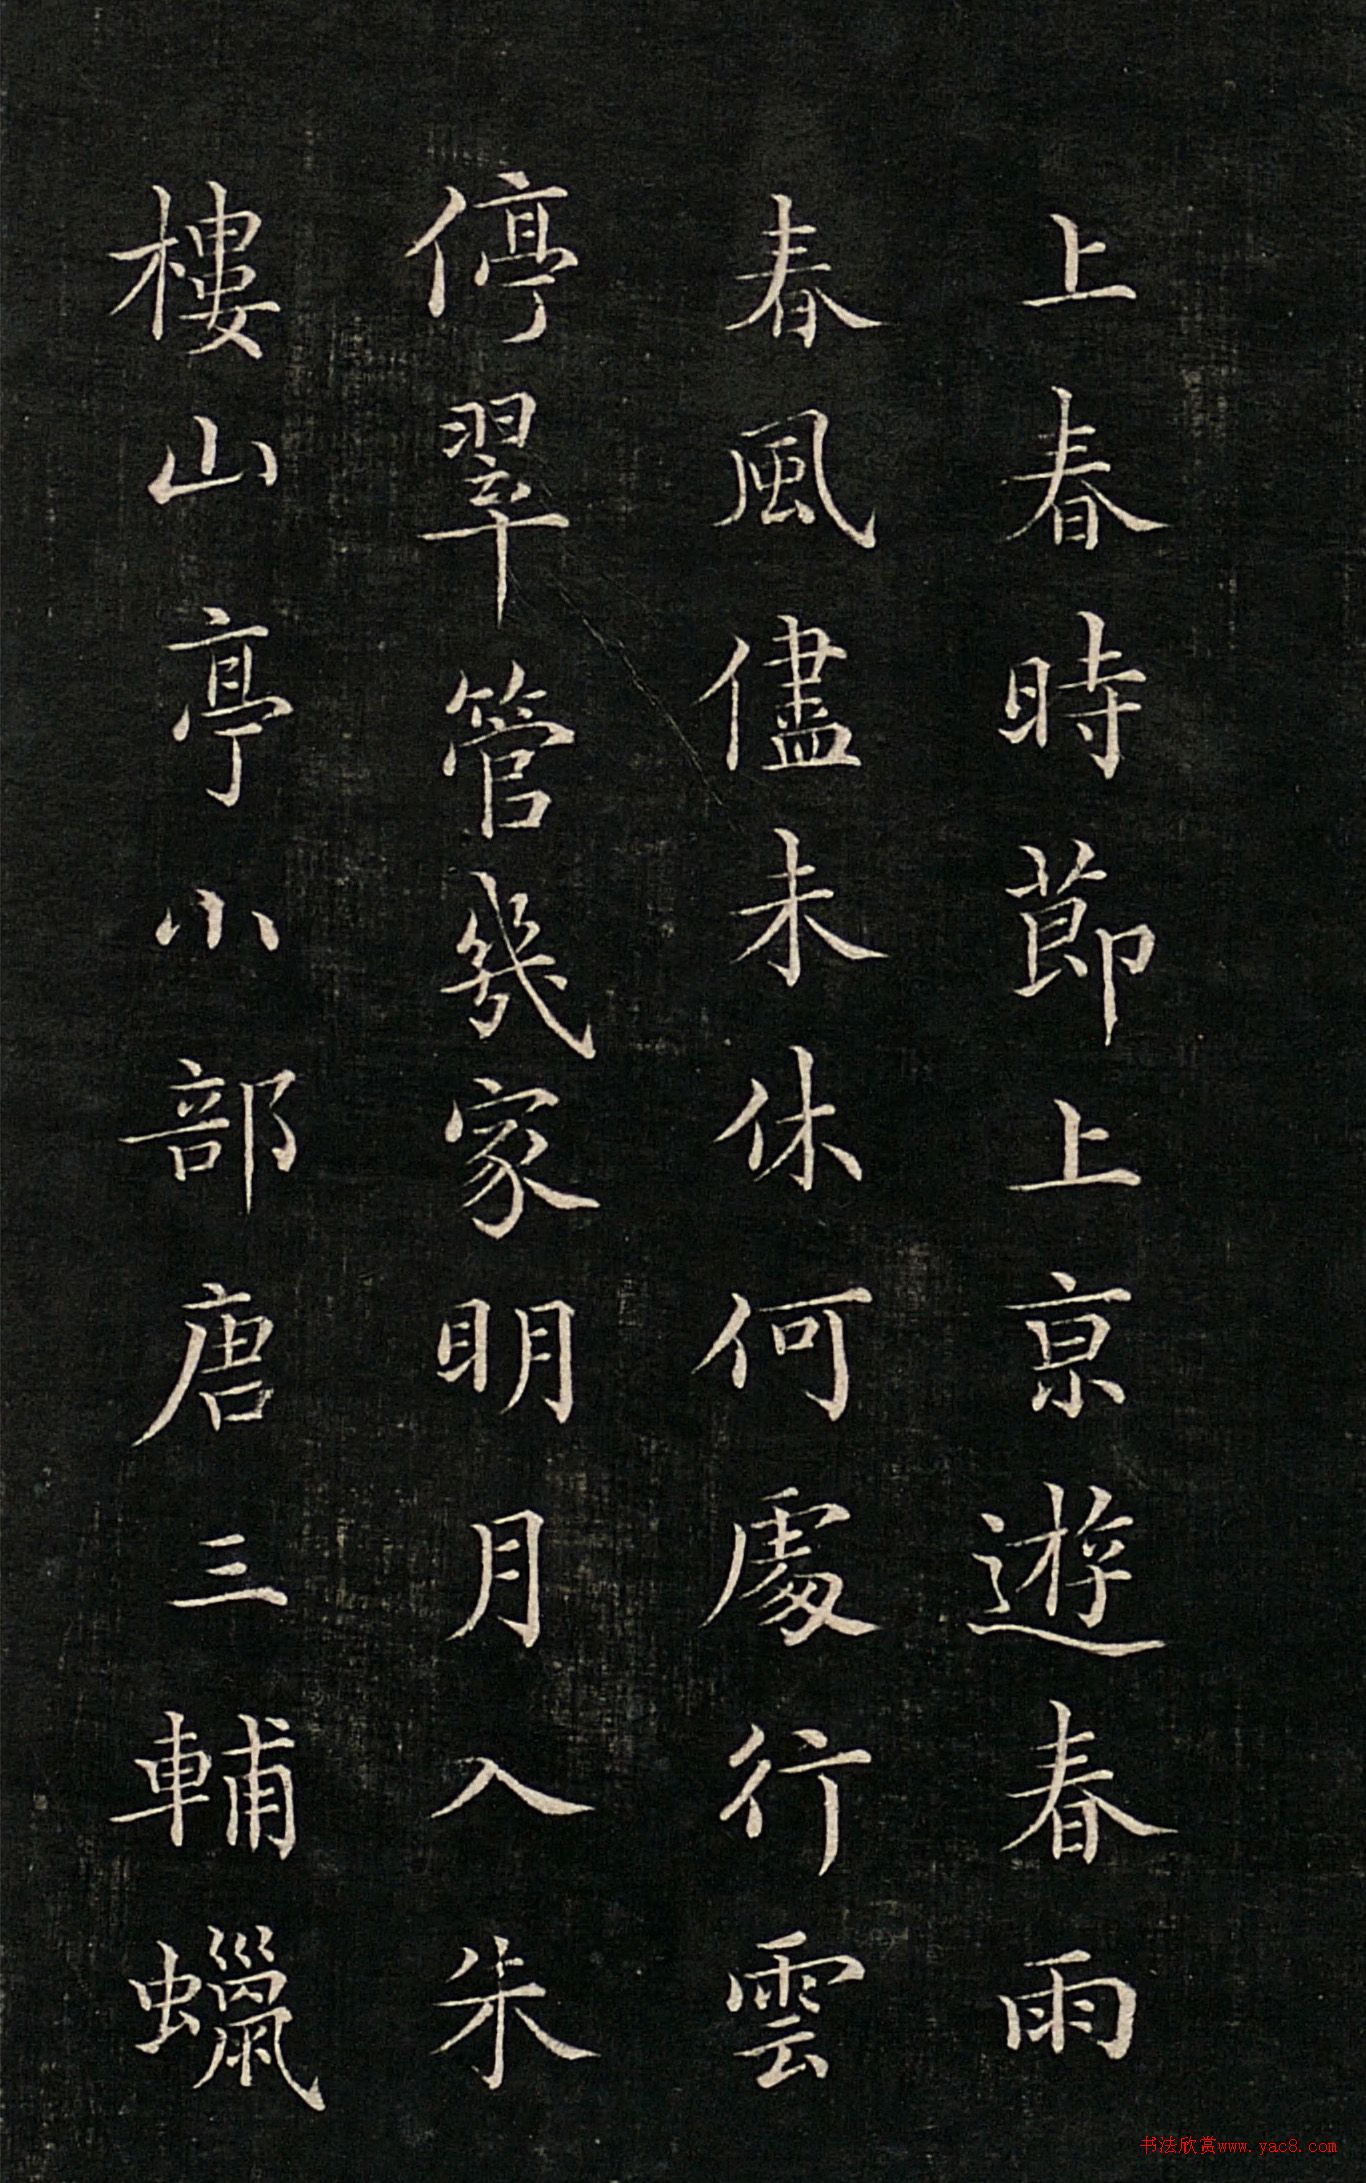 上春時節上京遊春雨
春風儘未休何處行雲
停翠管幾家明月入朱
樓山亭小部唐三輔蠟
书法欣赏www.yac8.com